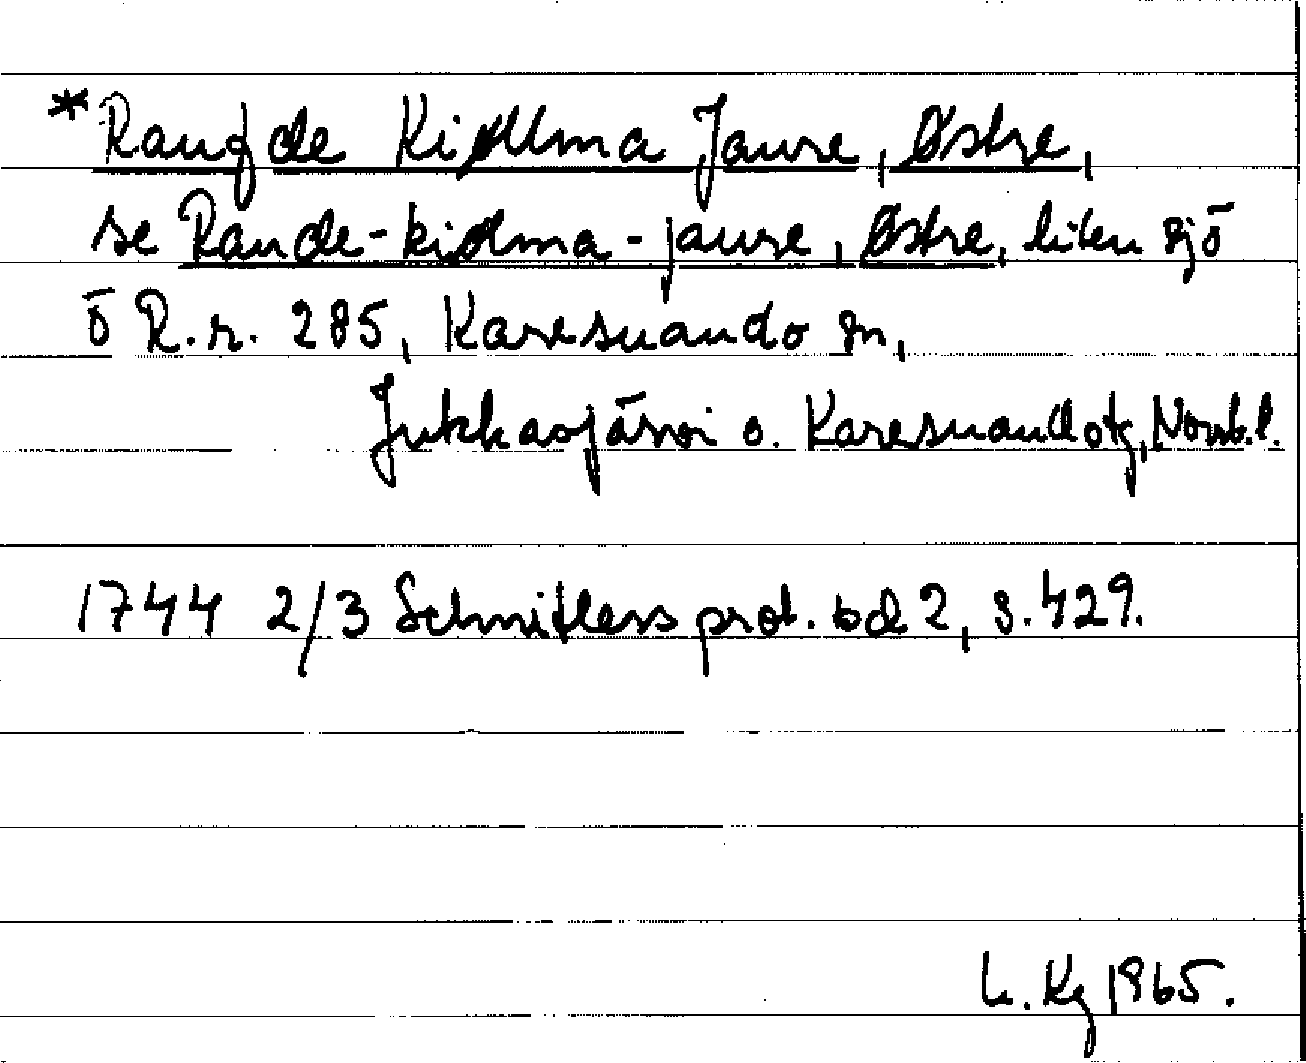 *Raufde Kiølma Jaure, Østre,
se Raude-kiølma-jaure, Østre, liten sjö
ö R.r. 285, Karesuando sn,
Jukkasjärvi o. Karesuando tg, Norrb.l.
1744 2/3 Schnitlers prot. bd 2, s. 429.
L. Kg 1965.